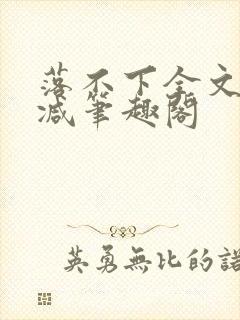 落不下全文
减笔趣阁
英勇無比的諾